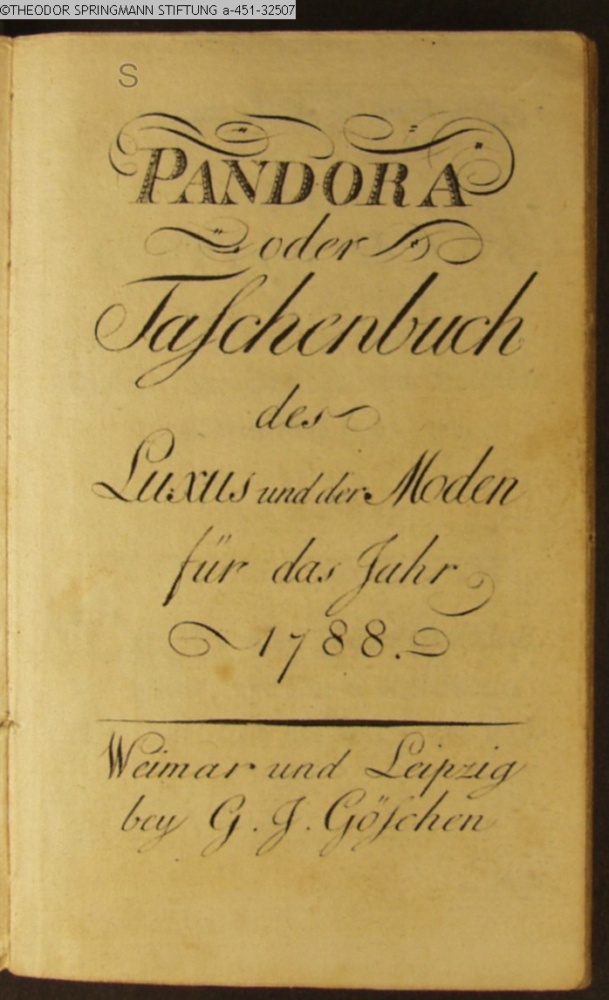 ©THEODOR SPRINGMANN STIFTUNG a-451-32507
S
PANDORA
oder
Taſchenbuch
des
Luxus und der Moden
für das Jahr
1788.
Weimar und Leipzig
bey G. J. Göſchen